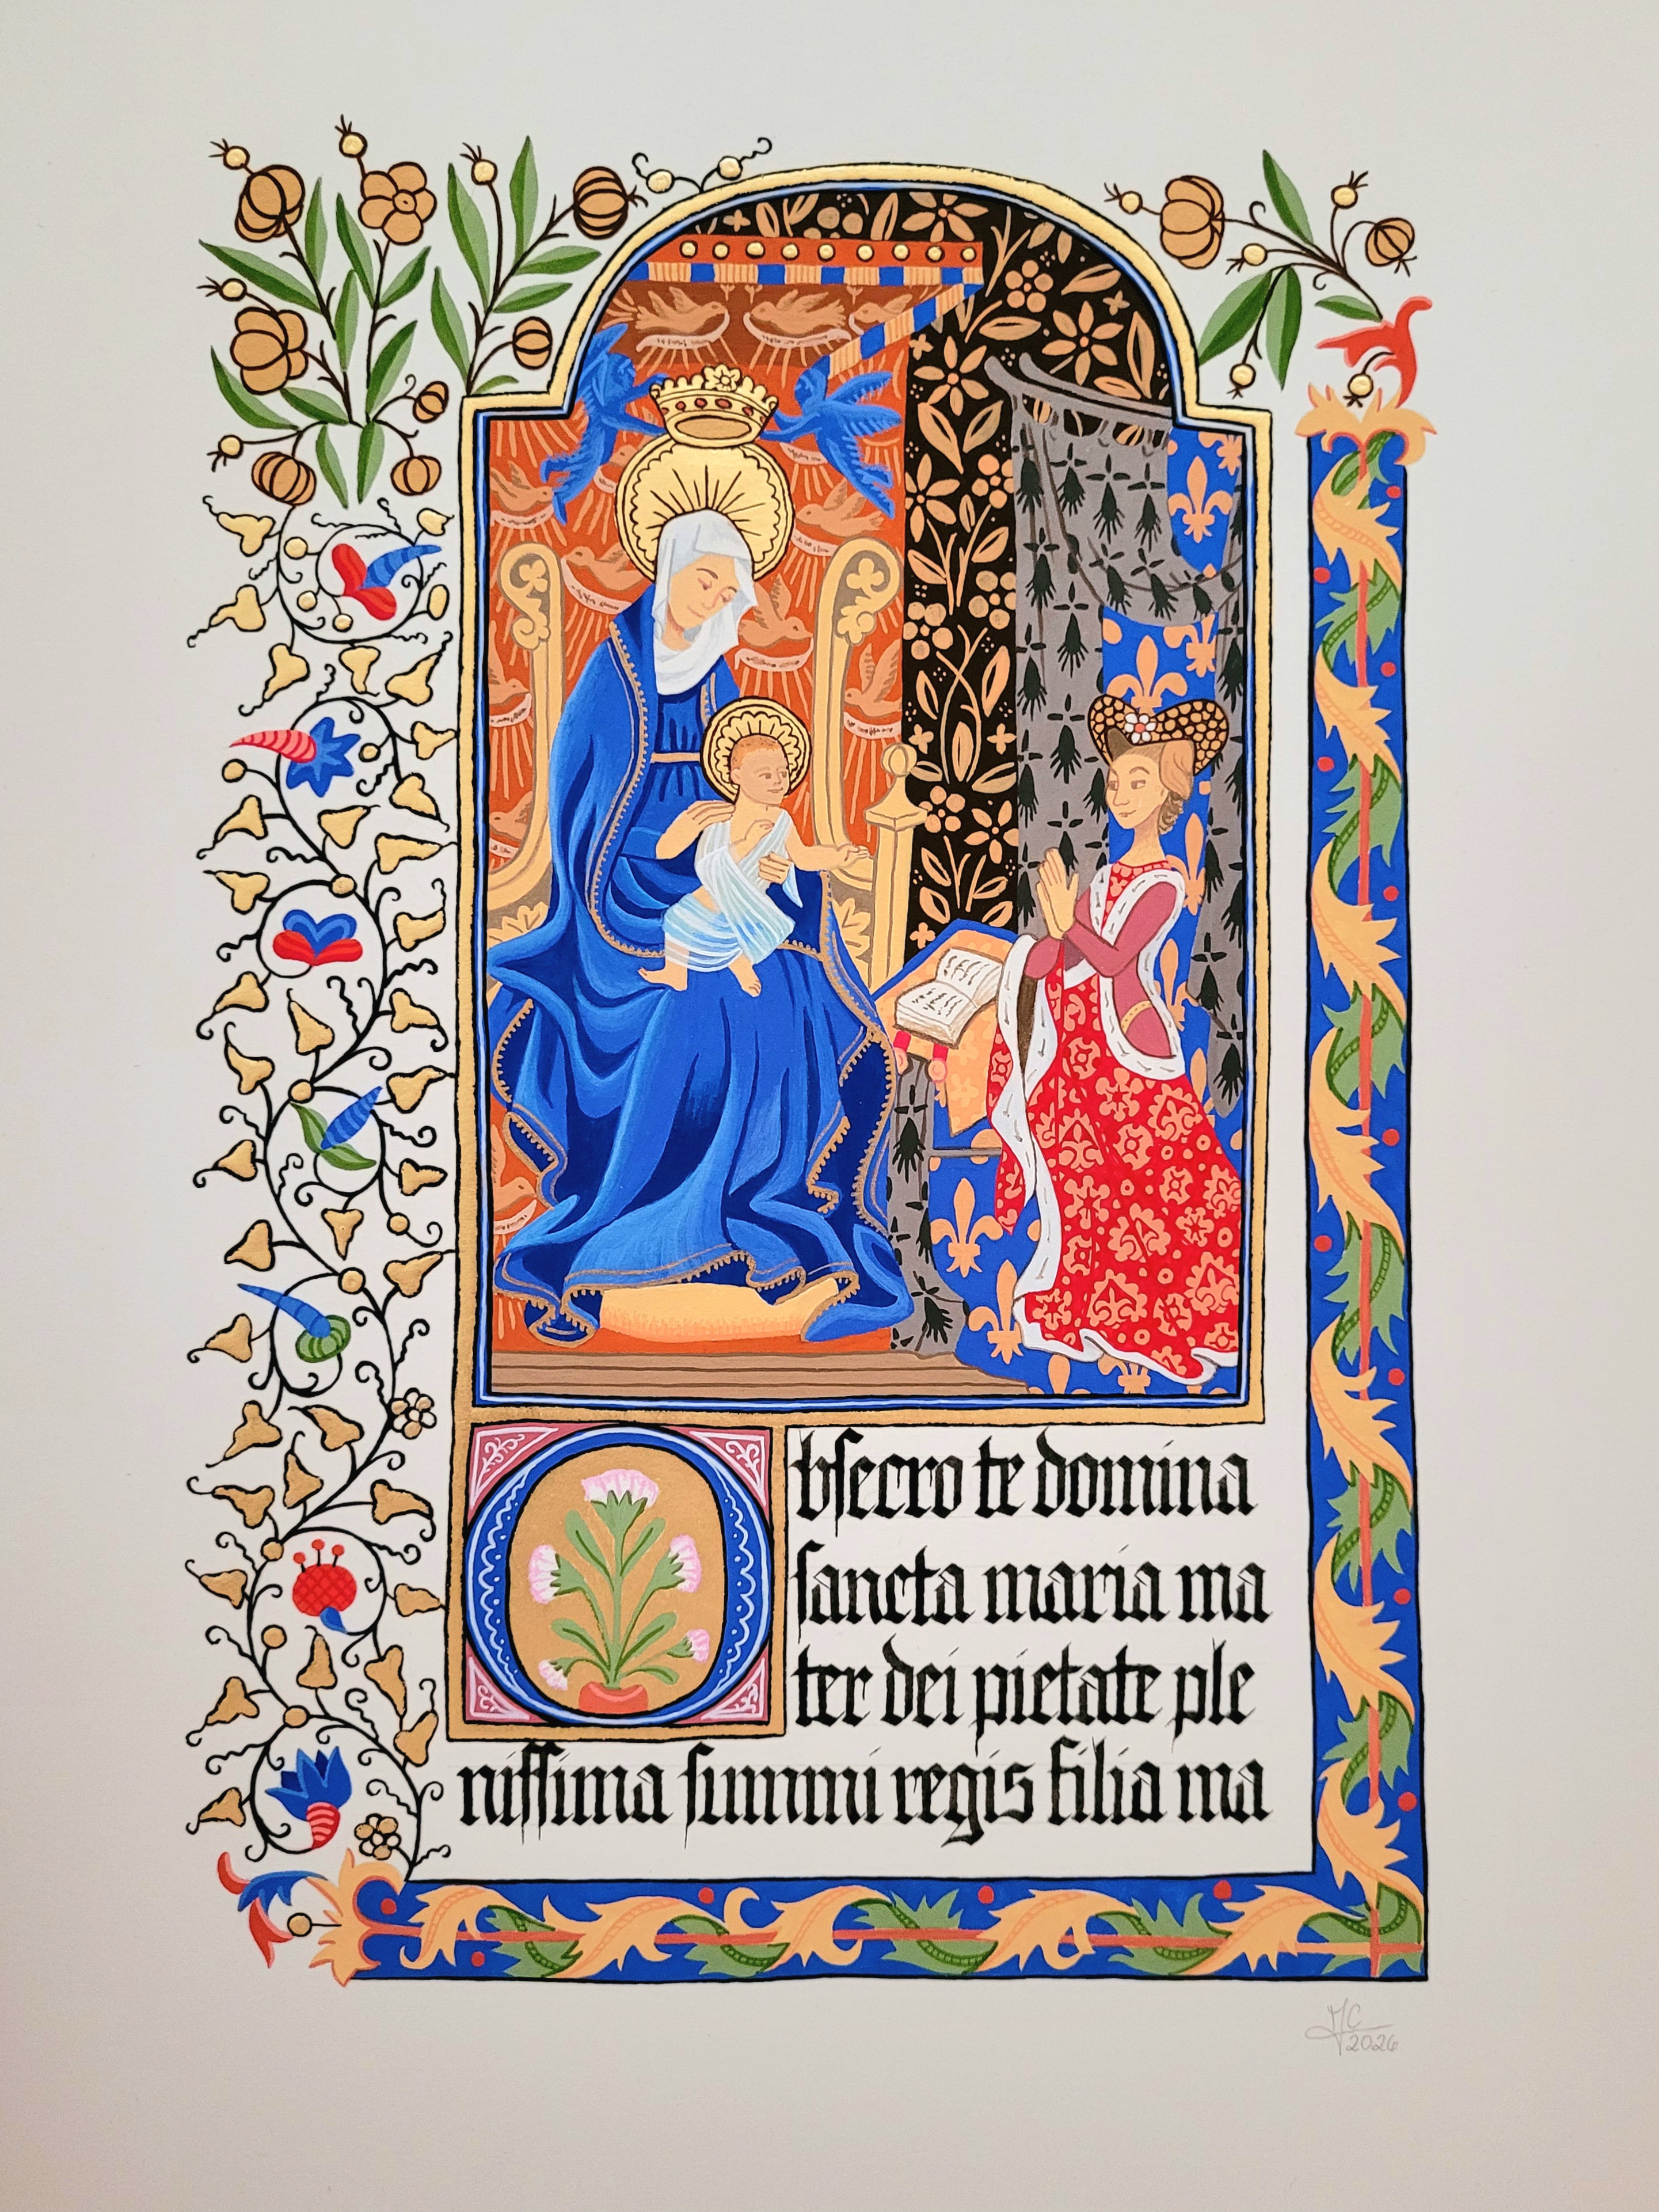 Obſecro te domina
ſancta maria ma
ter dei pietate ple
niſſima ſummi regis filia ma
MC
2026